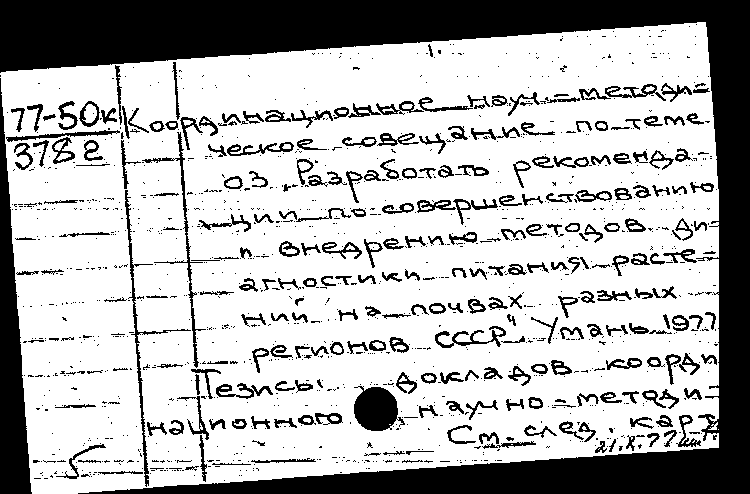 1.
77-50к Координационное науч.-методи-
3782 ческое совещание по теме
03 „Разработать рекоменда-
ции по совершенствованию
и внедрению методов ди-
агностики питания расте-
ний на почвах разных
регионов СССР", Умань 1977
Тезисы докладов коорди
национного научно-методи-
См. след. карт
21.X.77
5